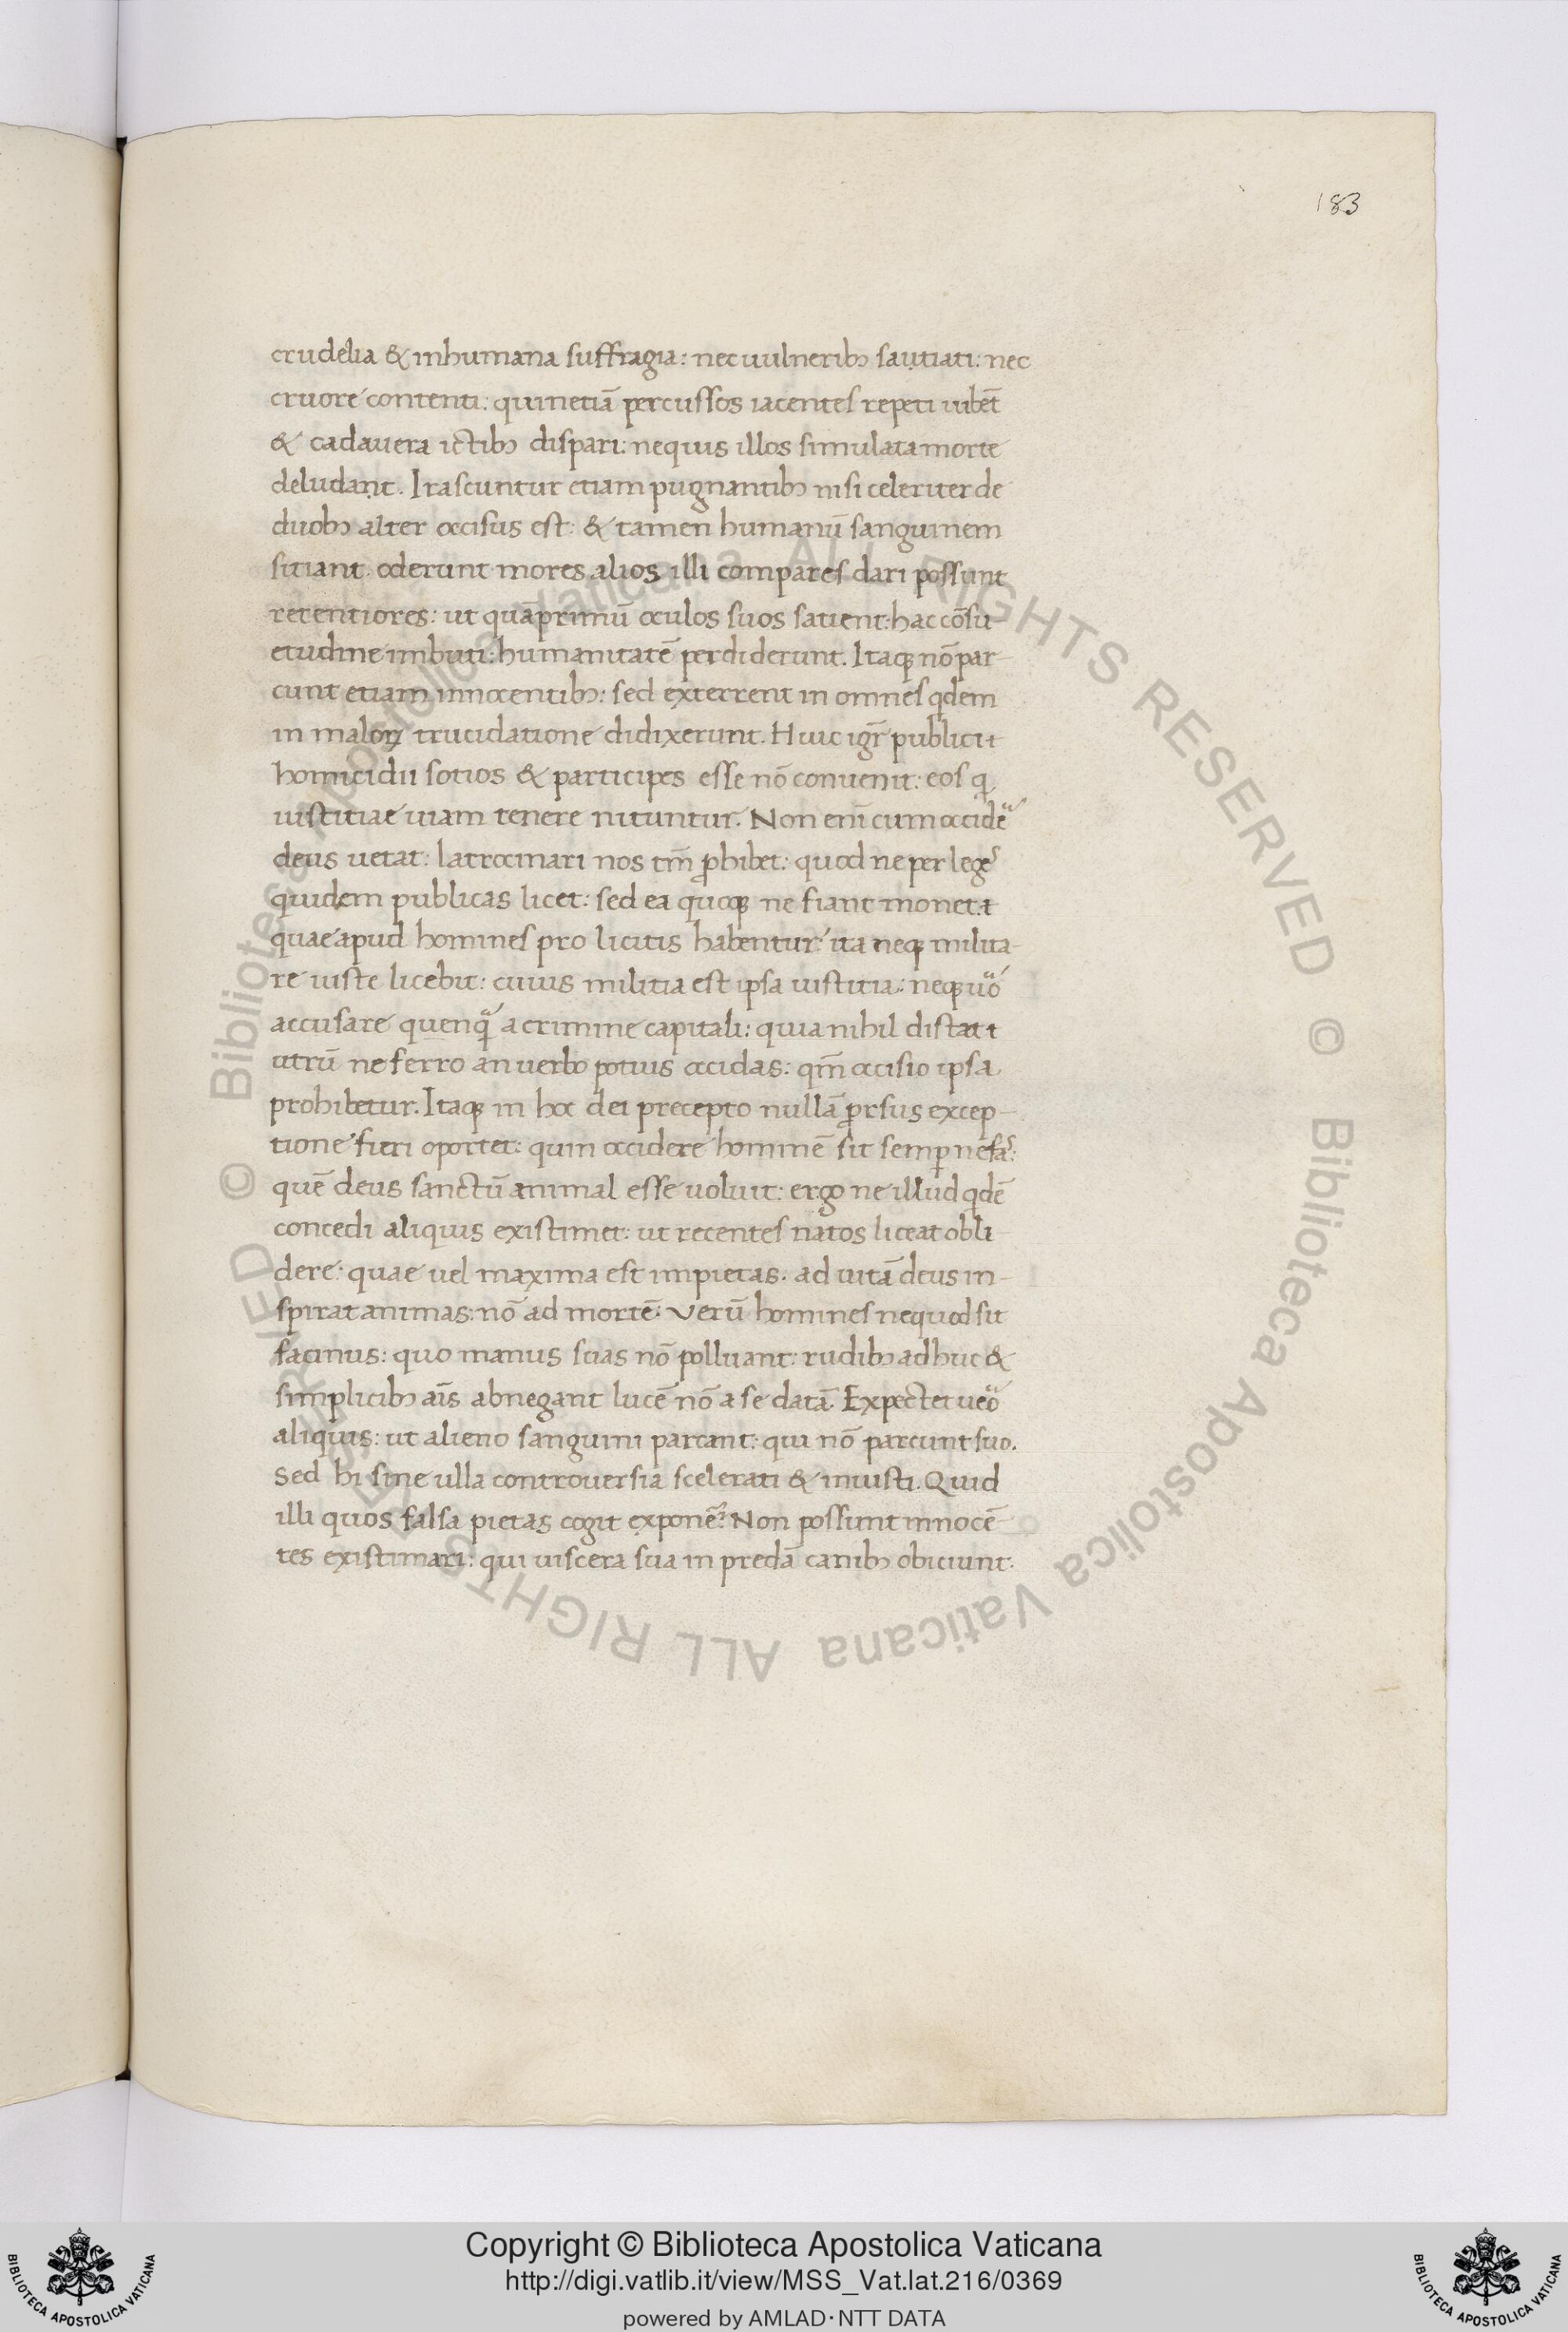 183
crudelia & inhumana suffragia: nec uulneribꝫ sautiati: nec
cruore contenti: quinetiā percussos iacentes repeti iubēt
& cadauera ictibꝫ dispari: nequis illos simulata morte
deludant. Irascuntur etiam pugnantibꝫ nisi celeriter de
duobꝫ alter occisus est: & tamen humanū sanguinem
sitiant. oderunt mores alios illi compares dari possunt
recentiores: ut quāprimū oculos suos satient: hac cōsu-
etudine imbuti: humanitatē perdiderunt. Itaqꝫ nō par-
cunt etiam innocentibꝫ: sed exterrent in omnes qdem
in maloꝝ trucidatione didixerunt. Huic igr̄ publici
homicidii sotios & participes esse nō conuenit: eos q
iustitiae uiam tenere nituntur. Non enī cum occidē
deus uetat: latrocinari nos tm̄ ꝓhibet: quod ne per leges
quidem publicas licet: sed ea quoqꝫ ne fiant monet
quae apud homines pro licitis habentur: ita neqꝫ milita-
re iuste licebit: cuius militia est ipsa iustitia: neqꝫ uo
accusare quenq̄ a crimine capitali: quia nihil distat
utrū ne ferro an uerbo potius occidas: qm̄ occisio ipsa
prohibetur. Itaqꝫ in hoc dei precepto nullā ꝓrsus excep-
tione fieri oportet: quin occidere hominē sit semꝑ nefas:
quē deus sanctū animal esse uoluit: ergo ne illud qdē
concedi aliquis existimet: ut recentes natos liceat obli-
dere: quae uel maxima est impietas. ad uitā deus in-
spirat animas: nō ad mortē. Verū homines nequod sit
facinus: quo manus suas nō polluant: rudibꝫ adhuc &
simplicibꝫ aīs abnegant lucē nō a se datā. Expectet ueo
aliquis: ut alieno sanguini parcant: qui nō parcunt suo.
Sed hi sine ulla controuersia scelerati & iniusti. Quid
illi quos falsa pietas cogit exponē? Non possunt innocē-
tes existimari: qui uiscera sua in predā canibꝫ obiciunt.
© Biblioteca Apostolica Vaticana ALL RIGHTS RESERVED © Biblioteca Apostolica Vaticana ALL RIGHTS RESERVED
Copyright © Biblioteca Apostolica Vaticana
http://digi.vatlib.it/view/MSS_Vat.lat.216/0369
powered by AMLAD·NTT DATA
BIBLIOTECA APOSTOLICA VATICANA
BIBLIOTECA APOSTOLICA VATICANA